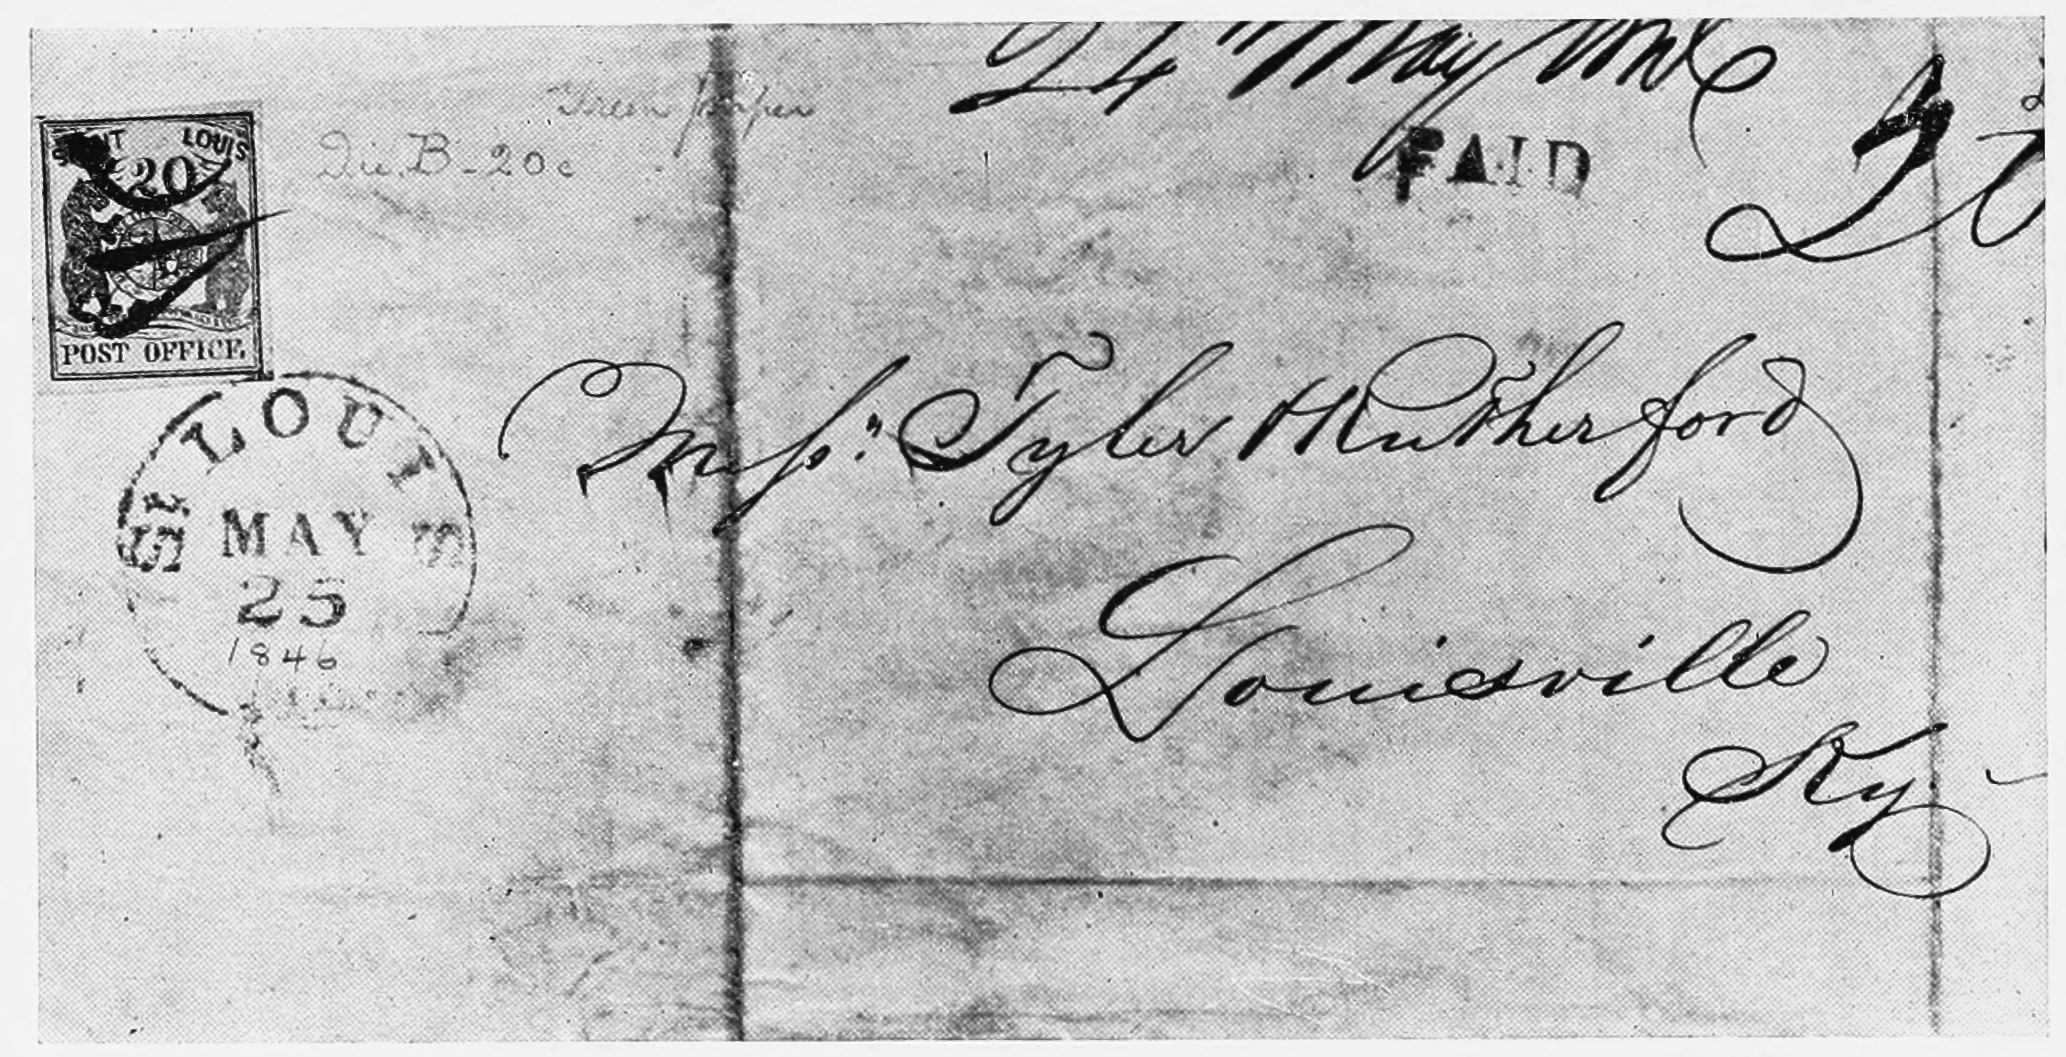 24 May
PAID
20
SAINT LOUIS
20
POST OFFICE.
Green paper
Die. B - 20c
ST LOUIS
MAY
25
1846
Messrs Tyler & Rutherford
Louisville
Ky